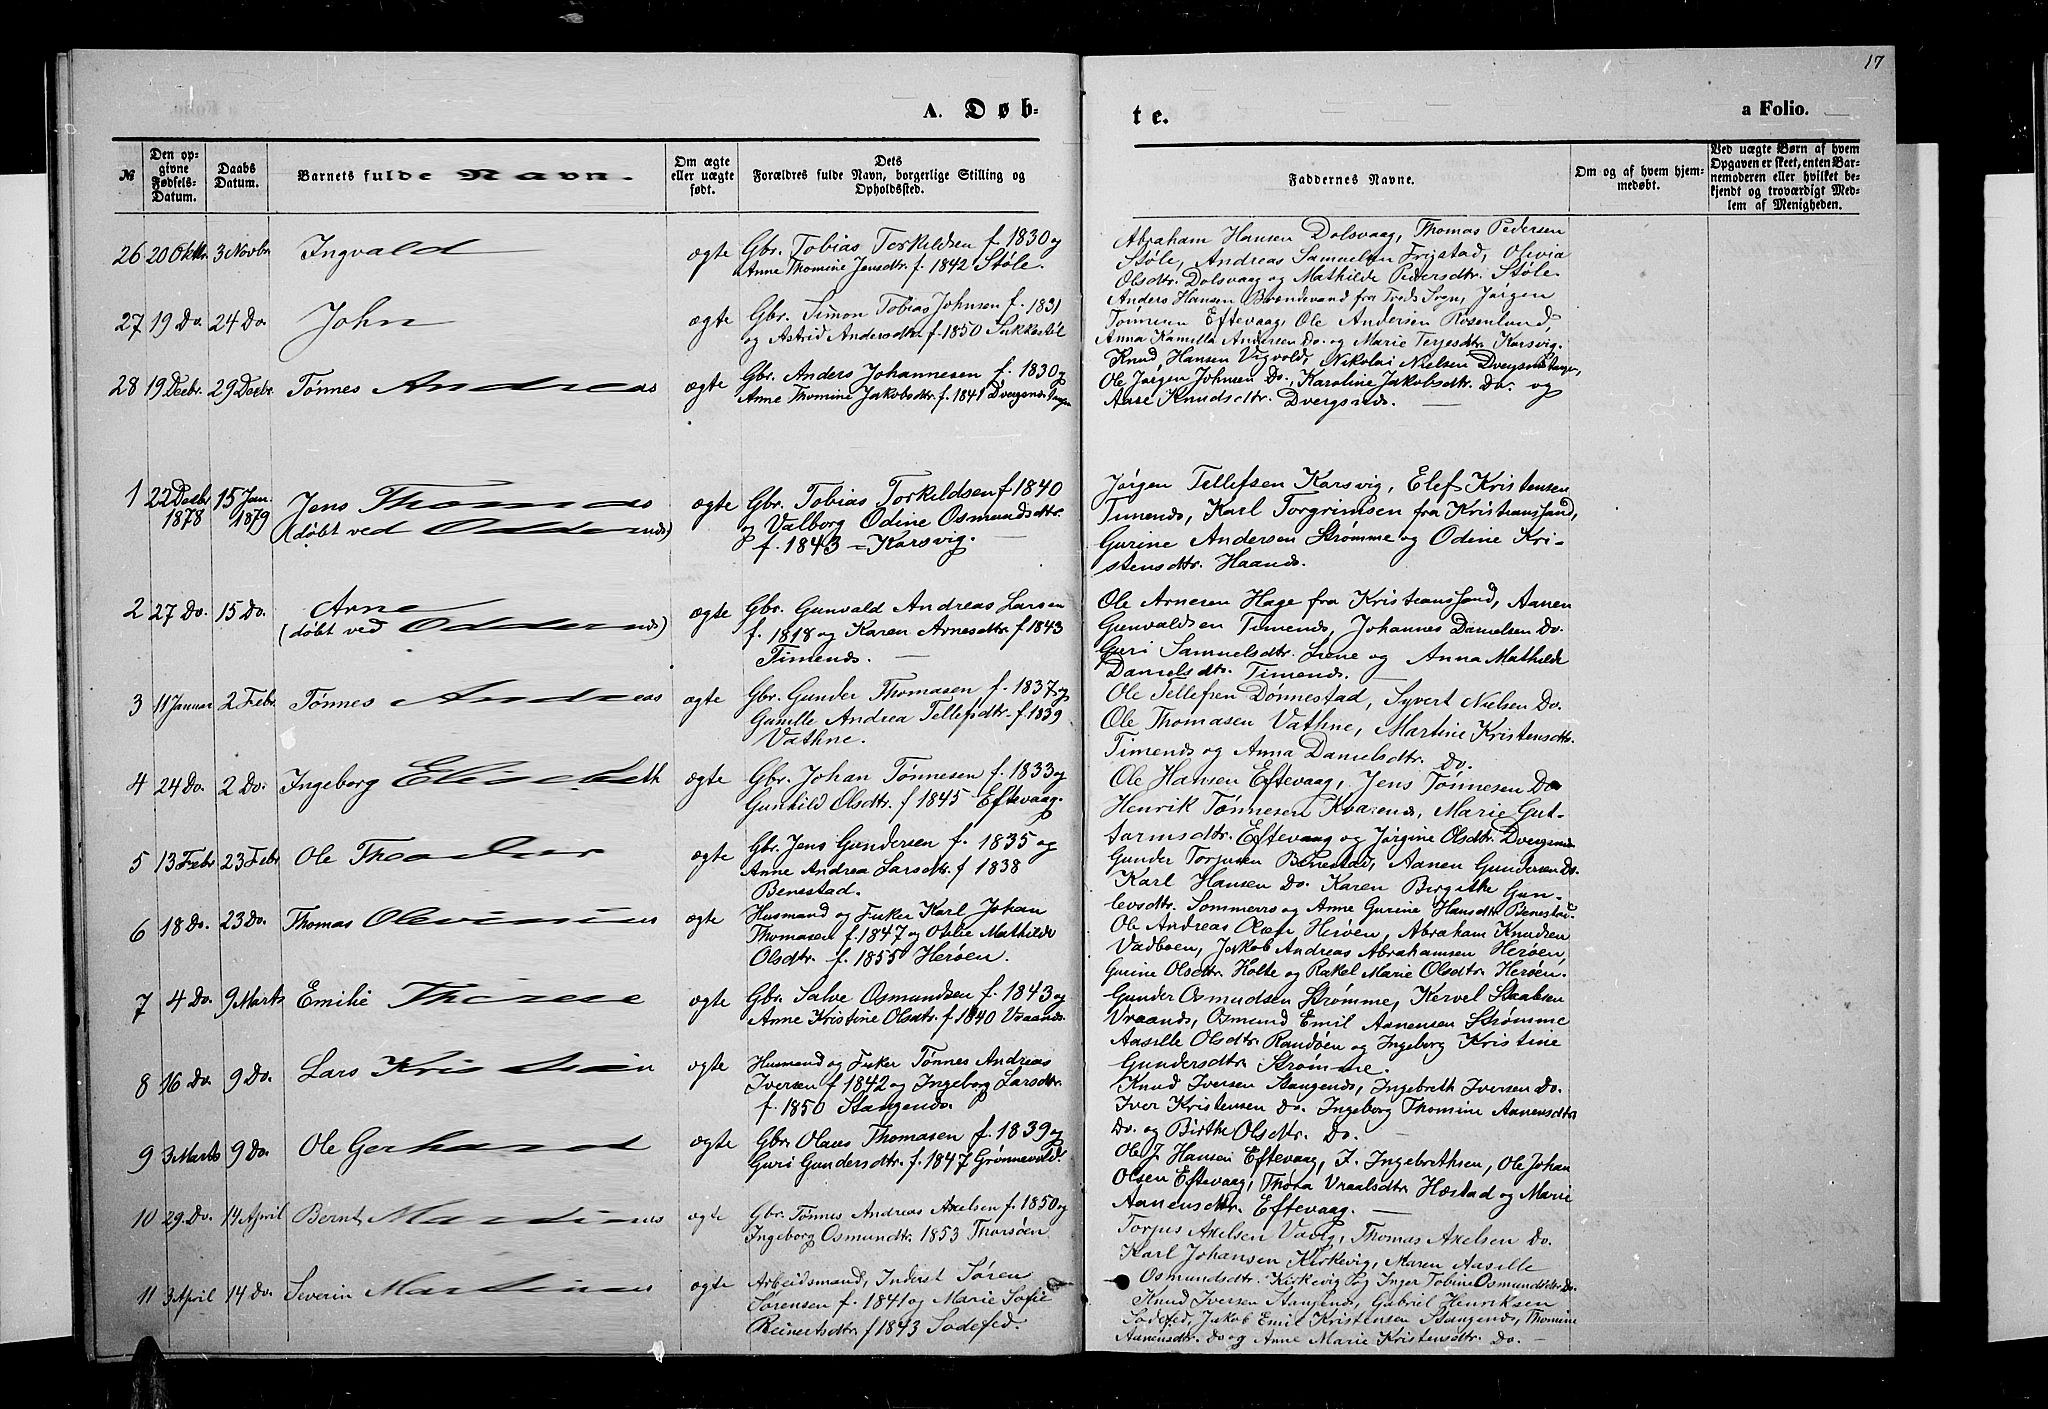 17
A. Døb-
te.
a Folio.
№
Den op-
givne
Fødsels-
Datum.
Daabs
Datum.
Barnets fulde Navn.
Om ægte
eller uægte
født.
Dets
Forældres fulde Navn, borgerlige Stilling og
Opholdssted.
Faddernes Navne.
Om og af hvem hjem-
medøbt.
Ved uægte Børn af hvem
Opgaven er skeet, enten Bar-
nemoderen eller hvilket be-
kjendt og troværdigt Med-
lem af Menigheden.
26 20 Oktbr. 3 Novbr. Ingvald ægte Gbr. Tobias Torkildsen f. 1830 og
Anne Thomine Jensdtr. f. 1842 Støle.
Abraham Hansen Dolsvaag, Thomas Pedersen
Støle, Andreas Samuelsen Frigstad, Olivia
Olsdtr. Dolsvaag og Mathilde Pedersdtr. Støle.
27 19 Do. 24 Do. John ægte Gbr. Simon Tobias Johnsen f. 1831
og Astrid Andersdtr. f. 1850 Sukkestøl
Anders Hansen Brændevand fra Treds Sogn, Jørgen
Tønnesen Eftevaag, Ole Andersen Rosenlund,
Anna Kamella Andersen Do. og Marie Terjesdtr. Korsvig.
28 19 Decbr. 29 Decbr. Tønnes Andreas ægte Gbr. Anders Johannesen f. 1830 og
Anne Thomine Jakobsdtr. f. 1841 Dvergsnestangen
Knud Hansen Vigvold, Nikolai Nielsen Dvergsnestangen,
Ole Jørgen Johnsen Do., Karoline Jakobsdtr. Do. og
Aase Knudsdtr. Dvergsnes.
1 22 Decbr. 15 Jan. Jens Thomas ægte Gbr. Tobias Torkildsen f. 1840
1878 1879 (døbt ved Oddernes) og Valborg Odine Osmundsdtr.
f. 1843 = Korsvig.
Jørgen Tellefsen Korsvig, Elef Kristensen
Timenes, Karl Torgrimsen fra Kristianssand,
Gurine Andersen Strømme og Odine Kri-
stensdtr. Haanes.
2 27 Do. 15 Do. Arne ægte Gbr. Gunvald Andreas Larsen
(døbt ved Oddernes) f. 1818 og Karen Arnesdtr. f. 1843
Timenes.
Ole Arnesen Hage fra Kristianssand, Aanen
Gunvaldsen Timenes, Johannes Danielsen Do.
Guri Samuelsdtr. Liene og Anna Mathilde
Danielsdtr. Timenes.
3 11 Januar 2 Febr. Tønnes Andreas ægte Gbr. Gunder Thomasen f. 1837 og
Gunille Andrea Tellefsdtr. f. 1839
Vathne.
Ole Tellefsen Dønnestad, Syvert Nielsen Do.
Ole Thomasen Vathne, Martine Kristensdtr.
Timenes og Anna Danielsdtr. do.
4 24 Do. 2 Do. Ingeborg Elisabeth ægte Gbr. Johan Tønnesen f. 1833 og
Gunhild Olsdtr. f. 1845 Eftevaag.
Ole Hansen Eftevaag, Jens Tønnesen Do
Henrik Tønnesen Kvarenes, Marie Gut-
tormsdtr. Eftevaag og Jørgine Olsdtr. Dvergsnes
5 13 Febr. 23 Febr. Ole Theodor ægte Gbr. Jens Gundersen f. 1835 og
Anne Andrea Larsdtr. f 1838
Benestad.
Gunder Torjusen Benestad, Aanen Gundersen Do.
Karl Hansen Do. Karen Birgithe Gun-
levsdtr. Sommerro og Anne Gurine Hansdtr. Benestad.
6 18 Do. 23 Do. Thomas Olevinius ægte Husmand og Fisker Karl Johan
Thomasen f. 1847 og Otilie Mathilde
Olsdtr. f. 1855 Herøen.
Ole Andreas Olsen Herøen, Abraham Knudsen
Vadboen, Jakob Andreas Abrahamsen Herøen,
Gurine Olsdtr. Holte og Rakel Marie Olsdtr. Herøen.
7 4 Do. 9 Marts Emilie Therese ægte Gbr. Salve Osmundsen f. 1843 og
Anne Kristine Olsdtr. f. 1840 Vraanes.
Gunder Osmudsen Strømme, Kervel Staalsen
Vraanes, Osmund Emil Aanensen Strømme
Aasille Olsdtr. Randøen og Ingeborg Kristine
Gundersdtr. Strømme.
8 16 Do. 9 Do. Lars Kristian ægte Husmand og Fisker Tønnes Andreas
Iversen f. 1842 og Ingeborg Larsdtr.
f. 1850 Stangenes.
Knud Iversen Stangenes, Ingebreth Iversen Do.
Iver Kristensen Do. Ingeborg Thomine Aanensdtr.
Do. og Birthe Olsdtr. Do.
9 3 Marts 9 Do. Ole Gerhard ægte Gbr. Olaus Thomasen f. 1839 og
Guri Gundersdtr. f. 1847 Grønnevold.
Ole J. Hansen Eftevaag, I. Ingebrethsen, Ole Johan
Olsen Eftevaag, Thora Vraalsdtr. Høstad og Marie
Aanensdtr. Eftevaag.
10 29 Do. 14 April Bernt Martinius ægte Gbr. Tønnes Andreas Axelsen f. 1850 og
Ingeborg Osmundtr. 1853 Tharsøen
Torjus Axelsen Vaag, Thomas Axelsen Do.
Karl Johansen Kirkevig, Maren Aasille
Osmundsdtr. Kirkevig og Inger Tobine Osmundsdtr. Do.
11 3 April 14 Do. Severin Martinius ægte Arbeidsmand, Inderst Søren
Sørensen f. 1841 og Marie Sofie
Reinertsdtr. f 1843 Sodefed.
Knud Iversen Stangenes, Gabriel Henriksen
Sodefed, Jakob Emil Kristensen Stangenes, Thomine
Aanensdtr. do og Anne Marie Kristensdtr. Do.